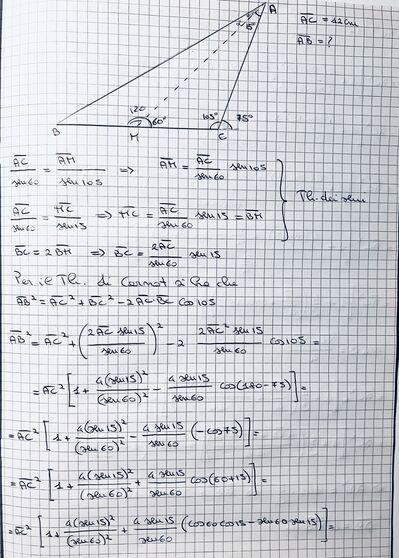 A
AC = 12 cm
15°
AB = ?
120 60° 105° 75°
B M C
AC/sen60 = AM/sen105 => AM = AC/sen60 sen105
AC/sen60 = MC/sen15 => MC = AC/sen60 sen15 = BM
Th. dei seni
BC = 2BM => BC = 2AC/sen60 sen15
Per il Th. di Carnot si ha che
AB² = AC² + BC² - 2AC·BC cos105
AB² = AC² + (2AC sen15/sen60)² - 2 2AC² sen15/sen60 cos105 =
= AC² [1 + 4(sen15)²/(sen60)² - 4sen15/sen60 cos(180-75)] =
= AC² [1 + 4(sen15)²/(sen60)² - 4sen15/sen60 (-cos75)] =
= AC² [1 + 4(sen15)²/(sen60)² + 4sen15/sen60 cos(60+15)] =
= AC² [1 + 4(sen15)²/(sen60)² + 4sen15/sen60 (cos60cos15 - sen60sen15)] =